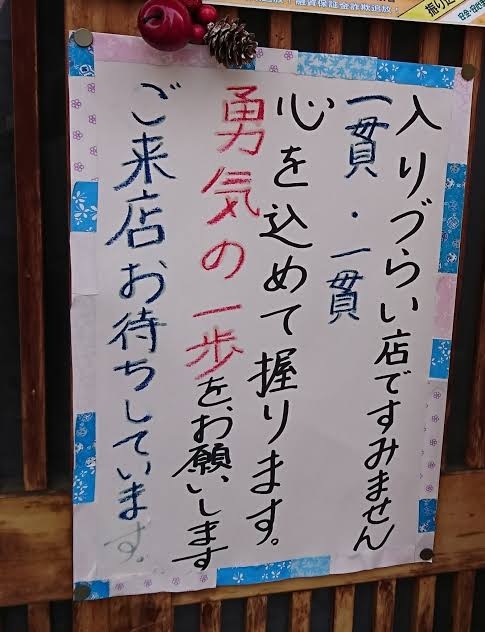 入りづらい店ですみません
一貫・一貫
心を込めて握ります。
勇気の一歩をお願いします
ご来店お待ちしています。
融資保証金詐欺追放